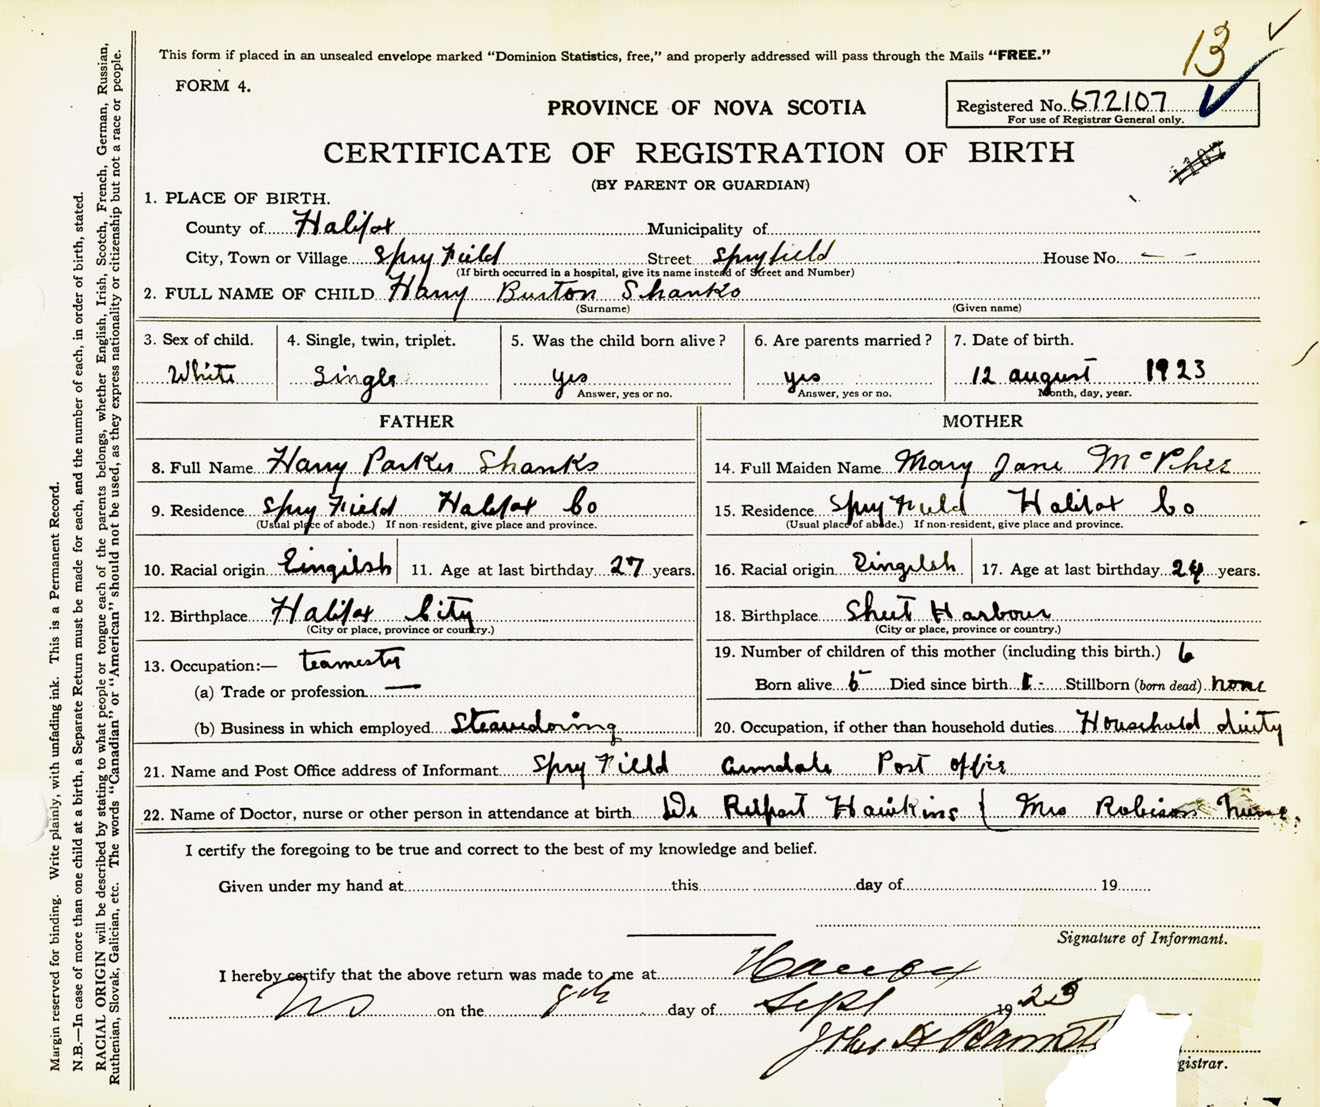 13
This form if placed in an unsealed envelope marked "Dominion Statistics, free," and properly addressed will pass through the Mails "FREE."
FORM 4.
PROVINCE OF NOVA SCOTIA
Registered No. 672107
For use of Registrar General only.
CERTIFICATE OF REGISTRATION OF BIRTH
(BY PARENT OR GUARDIAN)
1. PLACE OF BIRTH.
County of Halifax Municipality of
City, Town or Village Spry Field Street Spryfield House No. — -
(If birth occurred in a hospital, give its name instead of Street and Number)
2. FULL NAME OF CHILD Harry Burton Shanks
(Surname) (Given name)
3. Sex of child. 4. Single, twin, triplet. 5. Was the child born alive? 6. Are parents married? 7. Date of birth.
White Single yes yes 12 august 1923
Answer, yes or no. Answer, yes or no. Month, day, year.
FATHER MOTHER
8. Full Name Harry Parker Shanks 14. Full Maiden Name Mary Jane McPhee
9. Residence Spry Field Halifax Co 15. Residence Spry Field Halifax Co
(Usual place of abode.) If non-resident, give place and province. (Usual place of abode.) If non-resident, give place and province.
10. Racial origin Eingilsh 11. Age at last birthday 27 years. 16. Racial origin Eingilsh 17. Age at last birthday 24 years.
12. Birthplace Halifax City 18. Birthplace Sheet Harbour
(City or place, province or country.) (City or place, province or country.)
13. Occupation:— teamester 19. Number of children of this mother (including this birth.) 6
(a) Trade or profession — Born alive 5 Died since birth 1 - Stillborn (born dead) none
(b) Business in which employed Steawdoring 20. Occupation, if other than household duties Household duity
21. Name and Post Office address of Informant Spry Field Armdale Post offic
22. Name of Doctor, nurse or other person in attendance at birth Dr Hawkins ( Mrs Robison nurse
I certify the foregoing to be true and correct to the best of my knowledge and belief.
Given under my hand at this day of 19
Signature of Informant.
I hereby certify that the above return was made to me at Halifax
NS on the 8th day of Sept 1923
John H
gistrar.
Margin reserved for binding. Write plainly, with unfading ink. This is a Permanent Record.
N.B.—In case of more than one child at a birth, a Separate Return must be made for each, and the number of each, in order of birth, stated.
RACIAL ORIGIN will be described by stating to what people or tongue each of the parents belongs, whether English, Irish, Scotch, French, German, Russian,
Ruthenian, Slovak, Galician, etc. The words "Canadian" or "American" should not be used, as they express nationality or citizenship but not a race or people.